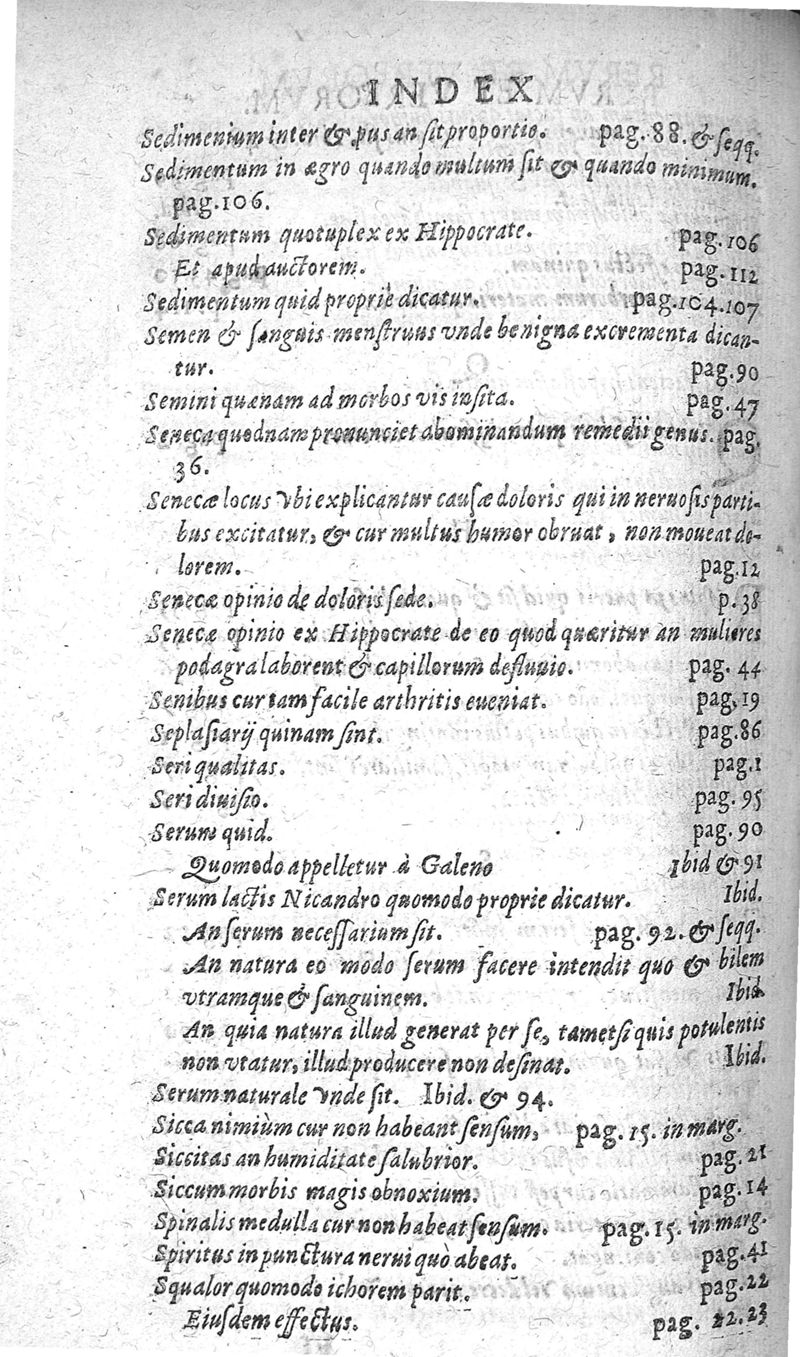 INDEX
Sedimenium inter & pus an sit proportio. pag. 88. & seqq.
Sedimentum in ægro quando multum sit & quando minimum.
pag. 106.
Sedimentum quotuplex ex Hippocrate. pag. 106
Et apud auctorem. pag. 112
Sedimentum quid propriè dicatur. pag. 104. 107
Semen & sanguis menstruus vnde benigna excrementa dican-
tur. pag. 90
Semini quænam ad morbos vis insita. pag. 47
Seneca quodnam pronunciet abominandum remedii genus. pag.
36.
Senecæ locus vbi explicantur causæ doloris qui in neruosis parti-
bus excitatur, & cur multus humor obruat, non moueat do-
lorem. pag. 12
Senecæ opinio de doloris sede. p. 38
Senecæ opinio ex Hippocrate de eo quod quæritur an mulieres
podagra laborent & capillorum defluuio. pag. 44
Senibus cur tam facile arthritis eueniat. pag. 19
Seplasiarij quinam sint. pag. 86
Seri qualitas. pag. 1
Seri diuisio. pag. 95
Serum quid. pag. 90
Quomodo appelletur à Galeno Ibid & 91
Serum lactis Nicandro quomodo proprie dicatur. Ibid.
An serum necessarium sit. pag. 92. & seqq.
An natura eo modo serum facere intendit quo & bilem
vtramque & sanguinem. Ibid.
An quia natura illud generat per se, tametsi quis potulentis
non vtatur, illud producere non desinat. Ibid.
Serum naturale vnde sit. Ibid. & 94.
Sicca nimiùm cur non habeant sensum, pag. 15. in marg.
Siccitas an humiditate salubrior. pag. 21
Siccum morbis magis obnoxium. pag. 14
Spinalis medulla cur non habeat sensum. pag. 15. in marg.
Spiritus in punctura nerui quò abeat. pag. 41
Squalor quomodo ichorem parit. pag. 22
Eiusdem effectus. pag. 22. 23